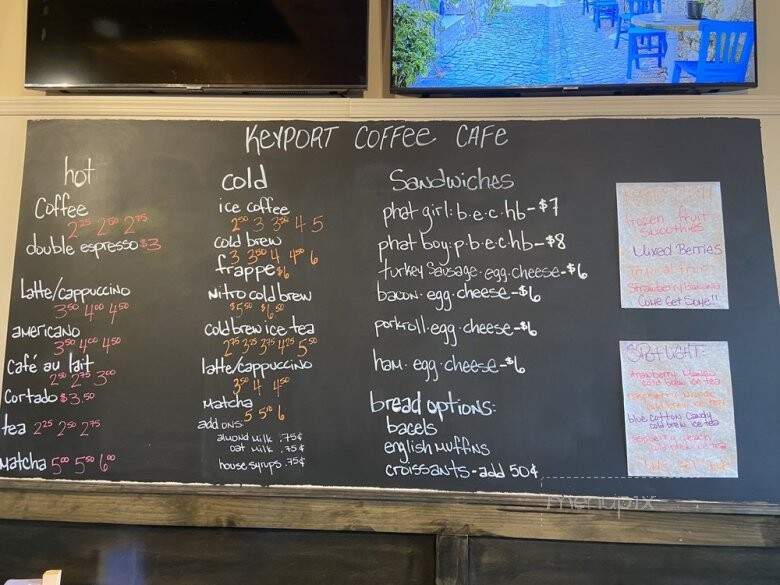 KEYPORT COFFEE CAFE
hot
Coffee
2²⁵ 2⁵⁰ 2⁷⁵
double espresso $3
Latte/cappuccino
3⁵⁰ 4⁰⁰ 4⁵⁰
americano
3⁵⁰ 4⁰⁰ 4⁵⁰
Café au lait
2⁵⁰ 2⁷⁵ 3⁰⁰
Cortado $3.50
tea 2²⁵ 2⁵⁰ 2⁷⁵
Matcha 5⁰⁰ 5⁵⁰ 6⁰⁰
cold
ice coffee
2⁵⁰ 3 3⁵⁰ 4 5
Cold brew
3 3⁵⁰ 4 4⁵⁰ 6
frappe $6
Nitro cold brew
$5⁵⁰ $6⁵⁰
Cold brew ice tea
2⁷⁵ 3²⁵ 3⁷⁵ 4²⁵ 5⁵⁰
latte/cappuccino
3⁵⁰ 4 4⁵⁰
Matcha
5 5⁵⁰ 6
add ons
almond milk .75¢
oat milk .75¢
house syrups .75¢
Sandwiches
phat girl: b.e.c.hb-$7
phat boy: p.b.e.c.hb-$8
turkey Sausage.egg.cheese-$6
bacon.egg.cheese-$6
porkroll.egg.cheese-$6
ham.egg.cheese-$6
bread options:
bagels
english muffins
croissants-add 50¢
frozen fruit
smoothies
Mixed Berries
Strawberry banana
Come Get Some!!
SPOTLIGHT:
cold brew ice tea
blue cotton Candy
cold brew ice tea
menupix